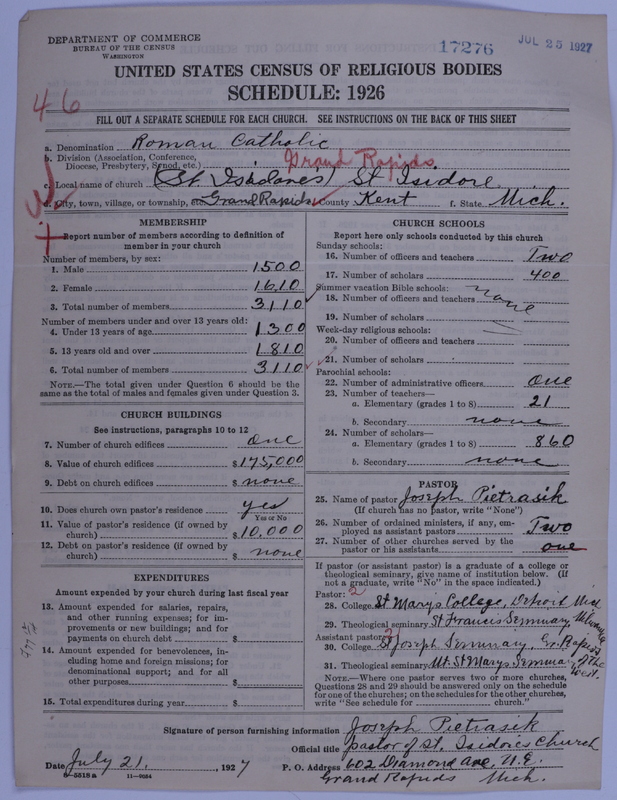 DEPARTMENT OF COMMERCE
BUREAU OF THE CENSUS
WASHINGTON
17276
JUL 25 1927
UNITED STATES CENSUS OF RELIGIOUS BODIES
SCHEDULE: 1926
46
FILL OUT A SEPARATE SCHEDULE FOR EACH CHURCH. SEE INSTRUCTIONS ON THE BACK OF THIS SHEET
a. Denomination Roman Catholic
b. Division (Association, Conference, Diocese, Presbytery, Synod, etc.) Grand Rapids
c. Local name of church (St Isidores) St Isidore
d. City, town, village, or township, Grand Rapids County Kent f. State Mich.
MEMBERSHIP
Report number of members according to definition of
member in your church
Number of members, by sex:
1. Male 1500
2. Female 1610
3. Total number of members 3110
Number of members under and over 13 years old:
4. Under 13 years of age 1300
5. 13 years old and over 1810
6. Total number of members 3110
NOTE.—The total given under Question 6 should be the
same as the total of males and females given under Question 3.
CHURCH BUILDINGS
See instructions, paragraphs 10 to 12
7. Number of church edifices one
8. Value of church edifices $175,000
9. Debt on church edifices $ none
10. Does church own pastor's residence yes
Yes or No
11. Value of pastor's residence (if owned by
church) $10,000
12. Debt on pastor's residence (if owned by
church) $ none
EXPENDITURES
Amount expended by your church during last fiscal year
13. Amount expended for salaries, repairs,
and other running expenses; for im-
provements or new buildings; and for
payments on church debt $
14. Amount expended for benevolences, in-
cluding home and foreign missions; for
denominational support; and for all
other purposes $
15. Total expenditures during year $
CHURCH SCHOOLS
Report here only schools conducted by this church
Sunday schools:
16. Number of officers and teachers Two
17. Number of scholars 400
Summer vacation Bible schools:
18. Number of officers and teachers none
19. Number of scholars
Week-day religious schools:
20. Number of officers and teachers
21. Number of scholars
Parochial schools:
22. Number of administrative officers one
23. Number of teachers—
a. Elementary (grades 1 to 8) 21
b. Secondary none
24. Number of scholars—
a. Elementary (grades 1 to 8) 860
b. Secondary none
PASTOR
25. Name of pastor Joseph Pietrasik
(If church has no pastor, write "None")
26. Number of ordained ministers, if any, em-
ployed as assistant pastors Two
27. Number of other churches served by the
pastor or his assistants one
If pastor (or assistant pastor) is a graduate of a college or
theological seminary, give name of institution below. (If
not a graduate, write "No" in the space indicated.)
Pastor: 2
28. College St Marys College, Detroit Mich
29. Theological seminary St Francis Seminary,
Assistant pastor:
30. College St Joseph Seminary, Gr. Rapids
31. Theological seminary Mt. St Marys Seminary, of the West.
NOTE.—Where one pastor serves two or more churches,
Questions 28 and 29 should be answered only on the schedule
for one of the churches; on the schedules for the other churches,
write "See schedule for church."
Signature of person furnishing information Joseph Pietrasik
Official title pastor of St. Isidores Church
Date July 21, 1927 P. O. Address 602 Diamond Ave, N.E.
8—5518a 11—9034
Grand Rapids Mich.